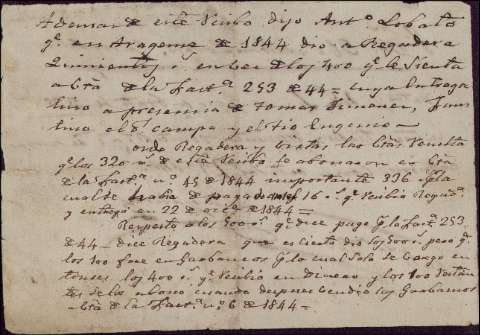 Ademas de este Recibo dijo Antº. Lobato
qe. en Arageme de 1844 dio a Regadera
Quinientos rs. en bez de los 400 qe. le sienta
a Cta. de la Factª. 253 de 44 = cuya Entrega
hizo a presencia de Tomas Ximenez, Faus
tino el del campo y el tio Eugenio =
oido Regadera y vistas las Ctas. resulta
qe. los 320 rs. de este Recibo se abonaron en Cta.
de la Factª. nº 45 de 1844 importante 336 rs. la
cual se habia de pagado 16 rs. qe. recibio Regadª.
y entregó en 22 de octe. de 1844 =
Respecto a los 500 rs. qe. dice pago pr. la Factª. 253
de 44 - dice Regadera que es cierto dio los 500 rs. pero qe.
los 100 fue en Garbanzos pr. lo cual solo se cargo en
tonces los 400 rs. qe. recibio en Dinero y los 100 restan
tes se los abonó cuando despues bendio los Garbanzos
a Cta. de la Factª. nº 6 de 1844 =